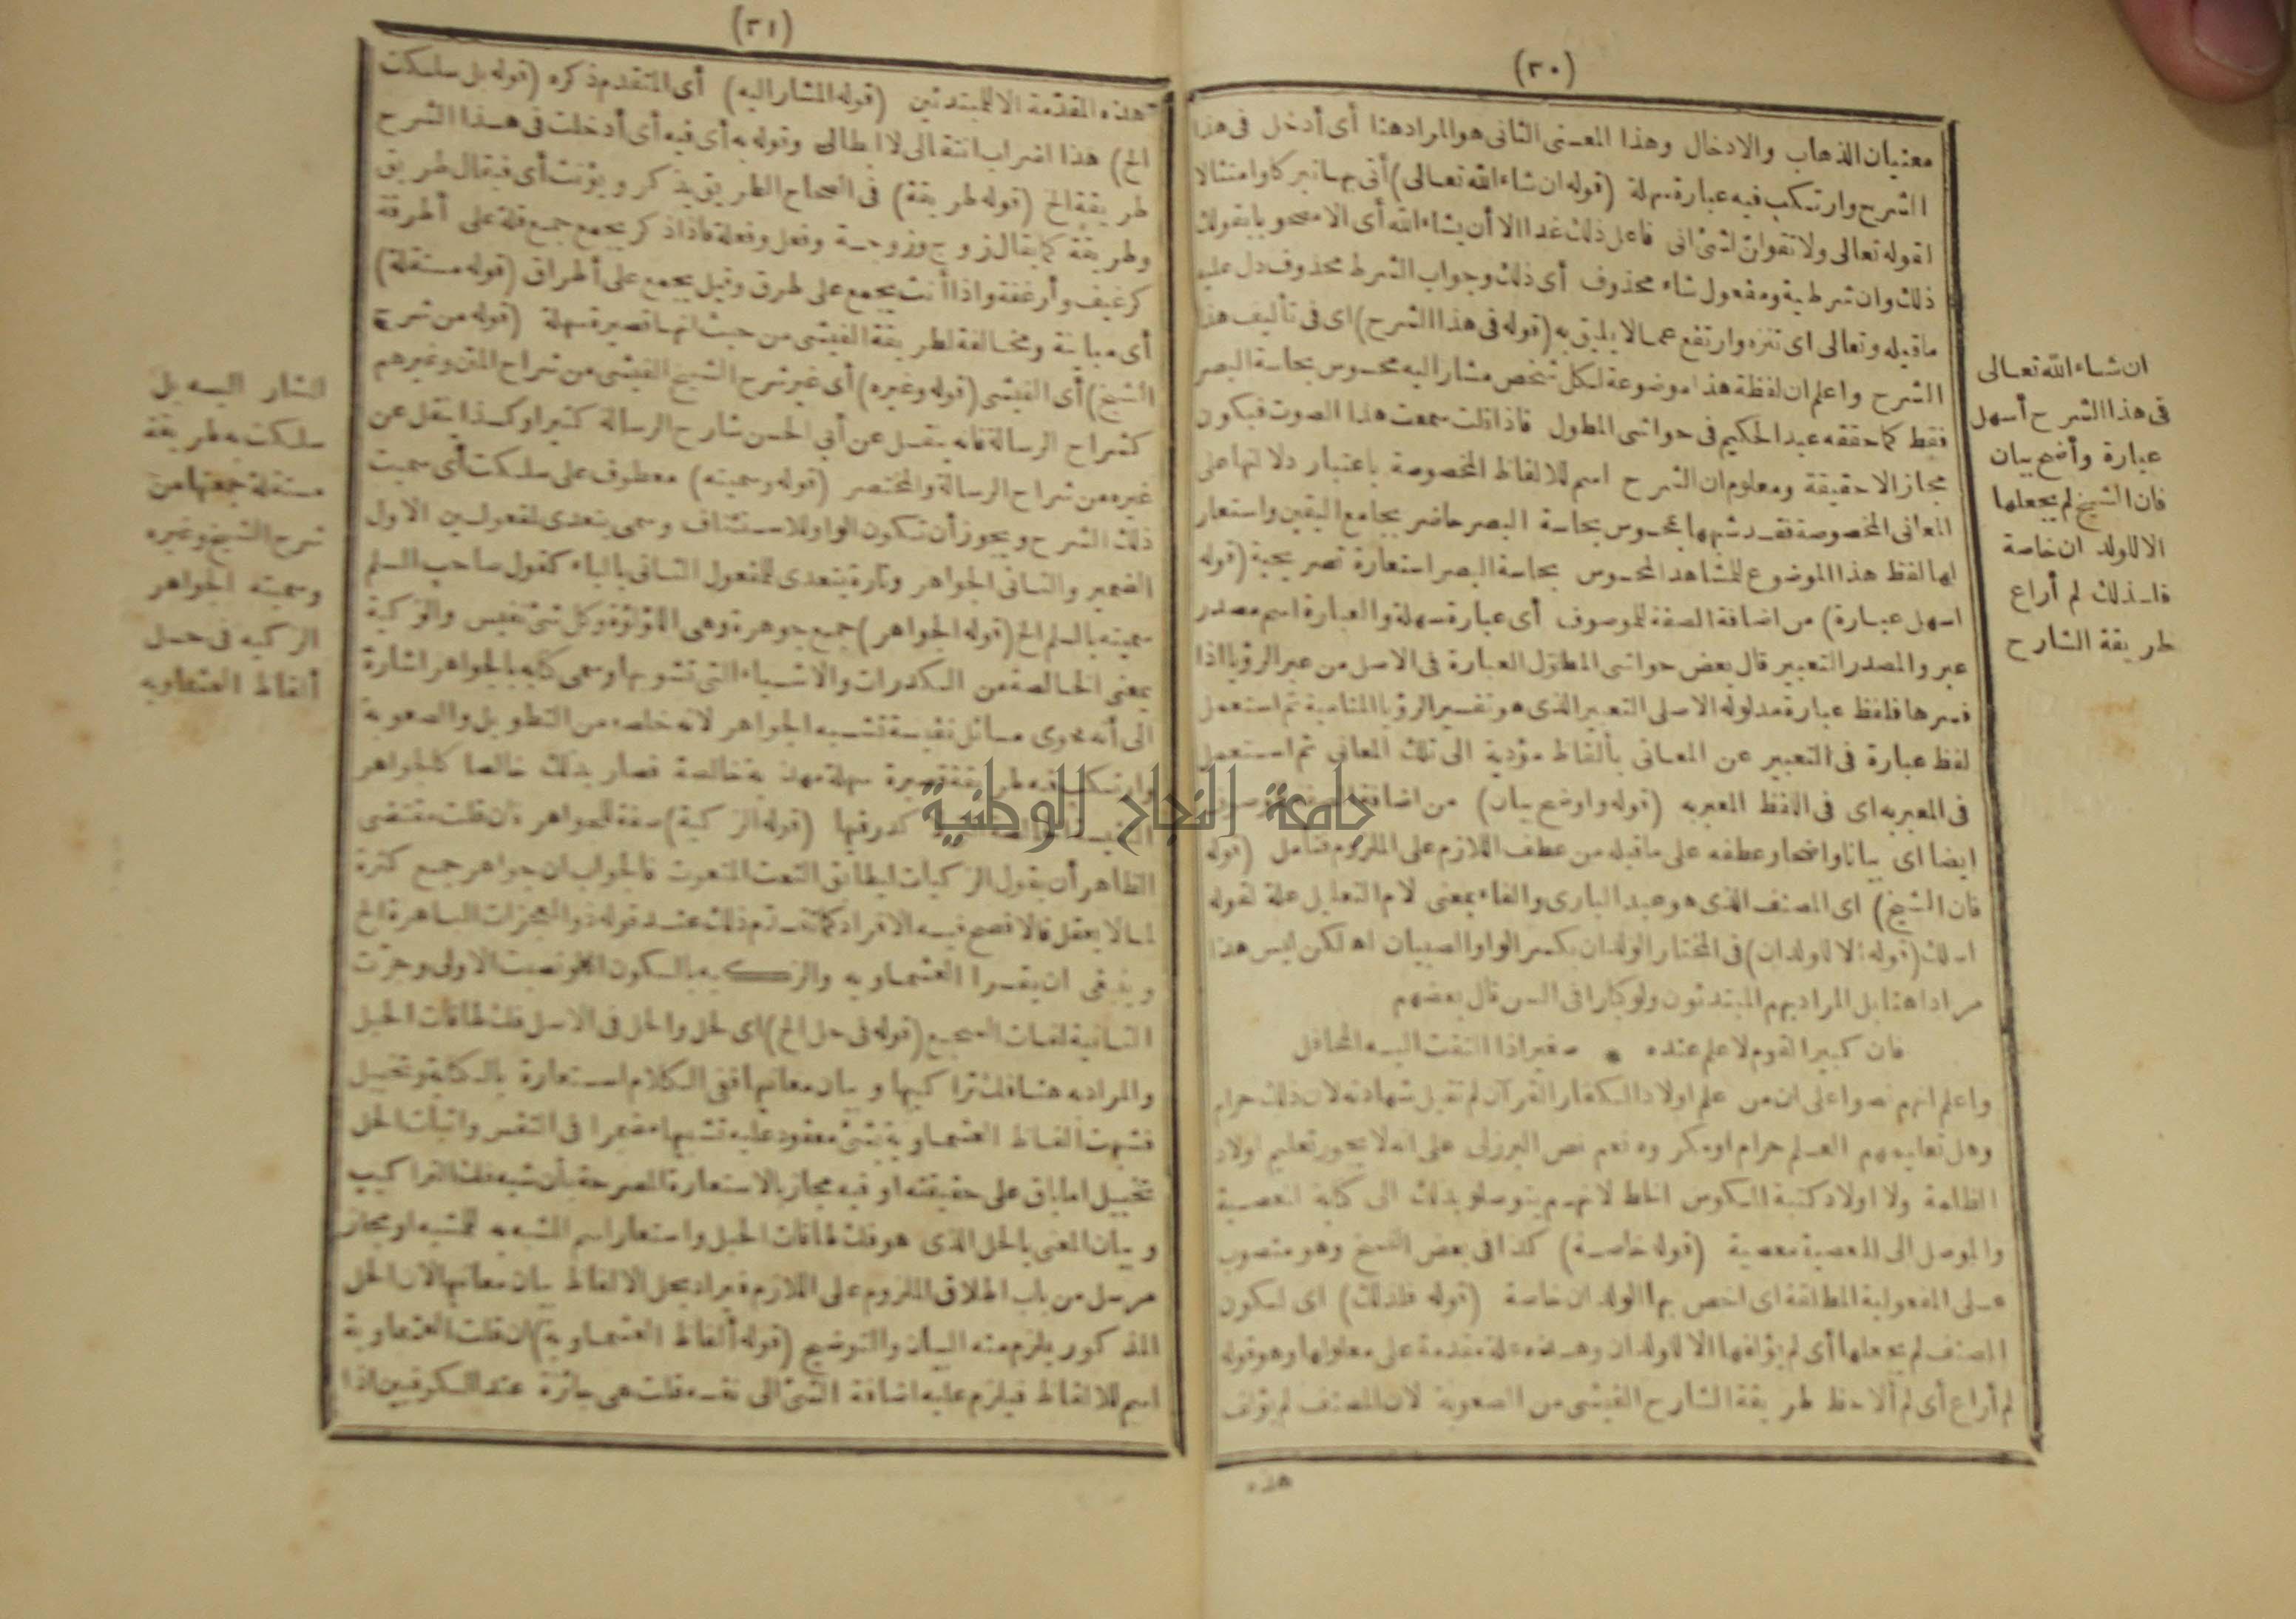 (٢٠)
معنيان الذهاب والادخال وهذا المعنى الثانى هو المراد هنا أى أدخل فى هذا
الشرح وارتكب فيه عبارة سهلة (قوله ان شاء الله تعالى) أتى بها تبركا وامتثالا
لقوله تعالى ولا تقولن لشئ انى فاعل ذلك غدا الا أن يشاء الله أى الا مصحوبا بقولك
ذلك وان شرطية ومفعول شاء محذوف أى ذلك وجواب الشرط محذوف دل عليه
ما قبله وتعالى اى تنزه وارتفع عما لا يليق به (قوله فى هذا الشرح) اى فى تأليف هذا
الشرح واعلم ان لفظة هذا موضوعة لكل شخص مشار اليه محسوس بحاسة البصر
فقط كما حققه عبد الحكيم فى حواشى المطول فاذا قلت سمعت هذا الصوت فيكون
مجازا لا حقيقة ومعلوم ان الشرح اسم للالفاظ المخصوصة باعتبار دلالتها على
المعانى المخصوصة فقد شبهها بمحسوس بحاسة البصر حاضر بجامع اليقين واستعار
لها لفظ هذا الموضوع للمشاهد المحسوس بحاسة البصر استعارة تصريحية (قوله
اسهل عبارة) من اضافة الصفة للموصوف أى عبارة سهلة والعبارة اسم مصدر
عبر والمصدر التعبير قال بعض حواشى المطول العبارة فى الاصل من عبر الرؤيا اذا
فسرها فلفظ عبارة مدلوله الاصلى التعبير الذى هو تفسير الرؤيا المنامية ثم استعمل
لفظ عبارة فى التعبير عن المعانى بألفاظ مؤدية الى تلك المعانى ثم استعمل
فى المعبر به اى فى اللفظ المعبر به (قوله واوضح بيان) من اضافة
ايضا اى بيانا واضحا وعطفه على ما قبله من عطف اللازم على الملزوم فتأمل (قوله
فان الشيخ) اى المصنف الذى هو عبد البارى والفاء بمعنى لام التعليل علة لقوله
اسلك (قوله الا للولدان) فى المختار الولدان بكسر الواو الصبيان اه لكن ليس هذا
مرادا هنا بل المراد بهم المبتدئون ولو كبارا فى السن قال بعضهم
فان كبير القوم لا علم عنده * صغير اذا التفت اليه المحافل
واعلم انهم نصوا على ان من علم اولاد الكفار القرآن لم تقبل شهادته لان ذلك حرام
وهل تعليمهم العلم حرام او مكروه نعم نص البرزلى على انه لا يجوز تعليم اولاد
الظلمة ولا اولاد كتبة المكوس الخط لانهم يتوصلو بذلك الى كتابة المعصية
والموصل الى المعصية معصية (قوله خاصة) كذا فى بعض النسخ وهو منصوب
على المفعولية المطلقة اى اخص بها الولدان خاصة (قوله فلذلك) اى لكون
المصنف لم يجعلها أى لم يؤلفها الا للولدان وهذه علة مقدمة على معلولها وهو قوله
لم أراع أى لم ألاحظ طريقة الشارح الفيشى من الصعوبة لان المصنف لم يؤلف
هذه
ان شاء الله تعالى
فى هذا الشرح أسهل
عبارة وأضح بيان
فان الشيخ لم يجعلها
الا للولدان خاصة
فلذلك لم أراع
طريقة الشارح
(٢١)
هذه المقدمة الا للمبتدئين (قوله المشار اليه) أى المتقدم ذكره (قوله بل سلكت
الخ) هذا اضراب انتقالى لا ابطالى وقوله به أى فيه أى أدخلت فى هذا الشرح
طريقة الخ (قوله طريقة) فى الصحاح الطريق يذكر ويؤنث أى فيقال طريق
وطريقة كما يقال زوج وزوجة وفعل وفعلة فاذا ذكر يجمع جمع قلة على أطرقة
كرغيف وأرغفة واذا أنث يجمع على طرق وقيل يجمع على أطراق (قوله مستقلة)
أى مباينة ومخالفة لطريقة الفيشى من حيث انها قصيرة سهلة (قوله من شرح
الشيخ) أى الفيشى (قوله وغيره) أى غير شرح الشيخ الفيشى من شراح المتن وغيرهم
كشراح الرسالة فانه ينقل عن أبى الحسن شارح الرسالة كثيرا وكذا ينقل عن
غيره من شراح الرسالة والمختصر (قوله وسميته) معطوف على سلكت أى سميت
ذلك الشرح ويجوز أن تكون الواو للاستئناف وسمى يتعدى لمفعولين الاول
الضمير والثانى الجواهر وتارة يتعدى للمفعول الثانى بالباء كقول صاحب السلم
سميته بالسلم الخ (قوله الجواهر) جمع جوهرة وهى اللؤلؤة وكل شئ نفيس والزكية
بمعنى الخالصة من الكدرات والاشياء التى تشوبها وسمى كتابه بالجواهر اشارة
الى أنه محوى مسائل نفيسة تشبه الجواهر لانه خلصه من التطويل والصعوبة
وارتكب فيه طريقة قصيرة سهلة مهذبة خالصة فصار بذلك خالصا كالجواهر
كدر فيها (قوله الزكية) صفة للجواهر فان قلت مقتضى
الظاهر أن يقول الزكيات ليطابق النعت المنعوت فالجواب ان جواهر جمع كثرة
لما لا يعقل فالافصح فيه الافراد كما تقدم ذلك عند قوله ذو المعجزات الباهرة الخ
وينبغى ان يقرا العشماويه والزكيه بالسكون اذ لو نصبت الاولى وجرت
الثانية لفات السجع (قوله فى حل الخ) اى لحل والحل فى الاصل فك طاقات الحبل
والمراد به هنا فك تراكيبها وبيان معانيها ففى الكلام استعارة بالكناية وتخييل
فشبهت ألفاظ العشماوية بشئ معقود عليه تشبيها مضمرا فى النفس واثبات الحل
تخييل اما باق على حقيقته او فيه مجاز بالاستعارة المصرحة بأن شبه فك التراكيب
وبيان المعنى بالحل الذى هو فك طاقات الحبل واستعار اسم المشبه به للمشبه او مجاز
مرسل من باب اطلاق الملزوم على اللازم فيراد بحل الالفاظ بيان معانيها لان الحل
المذكور يلزم منه البيان والتوضيح (قوله ألفاظ العشماوية) ان قلت العشماوية
اسم للالفاظ فيلزم عليه اضافة الشئ الى نفسه قلت هى جائزة عند الكوفيين اذا
المشار اليه بل
سلكت به طريقة
مستقلة جمعتها من
شرح الشيخ وغيره
وسميته الجواهر
الزكيه فى حل
ألفاظ العشماويه
جامعة النجاح الوطنية